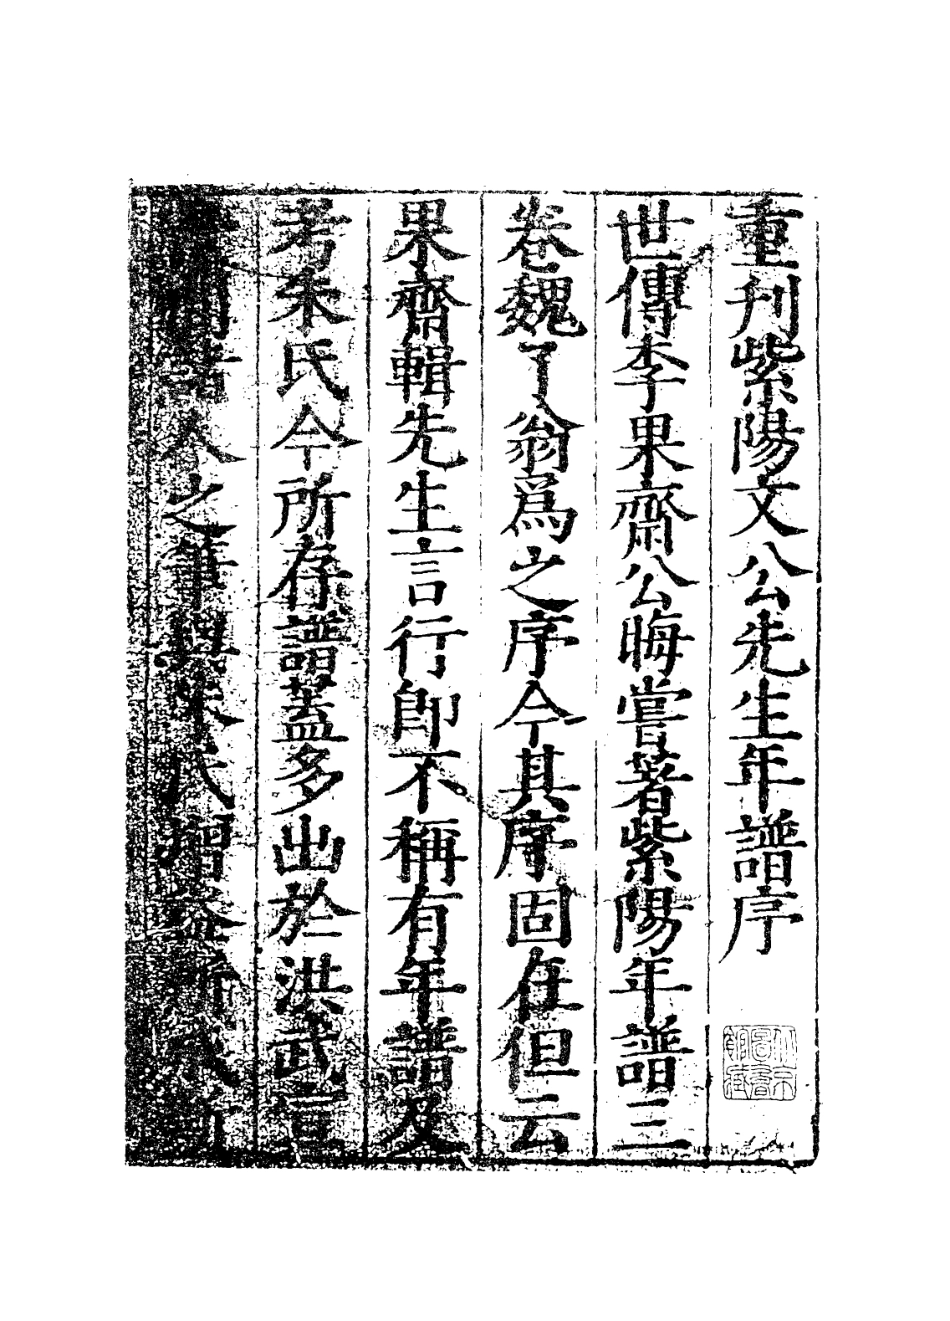 重刊紫陽文公先生年譜序
世傳李果齋公晦嘗著紫陽年譜三
卷魏了翁爲之序今其序固在但云
果齋輯先生言行卽不稱有年譜又
考朱氏今所存譜蓋多出於洪武宣
間諸人之筆與朱氏增益
北京圖書館藏